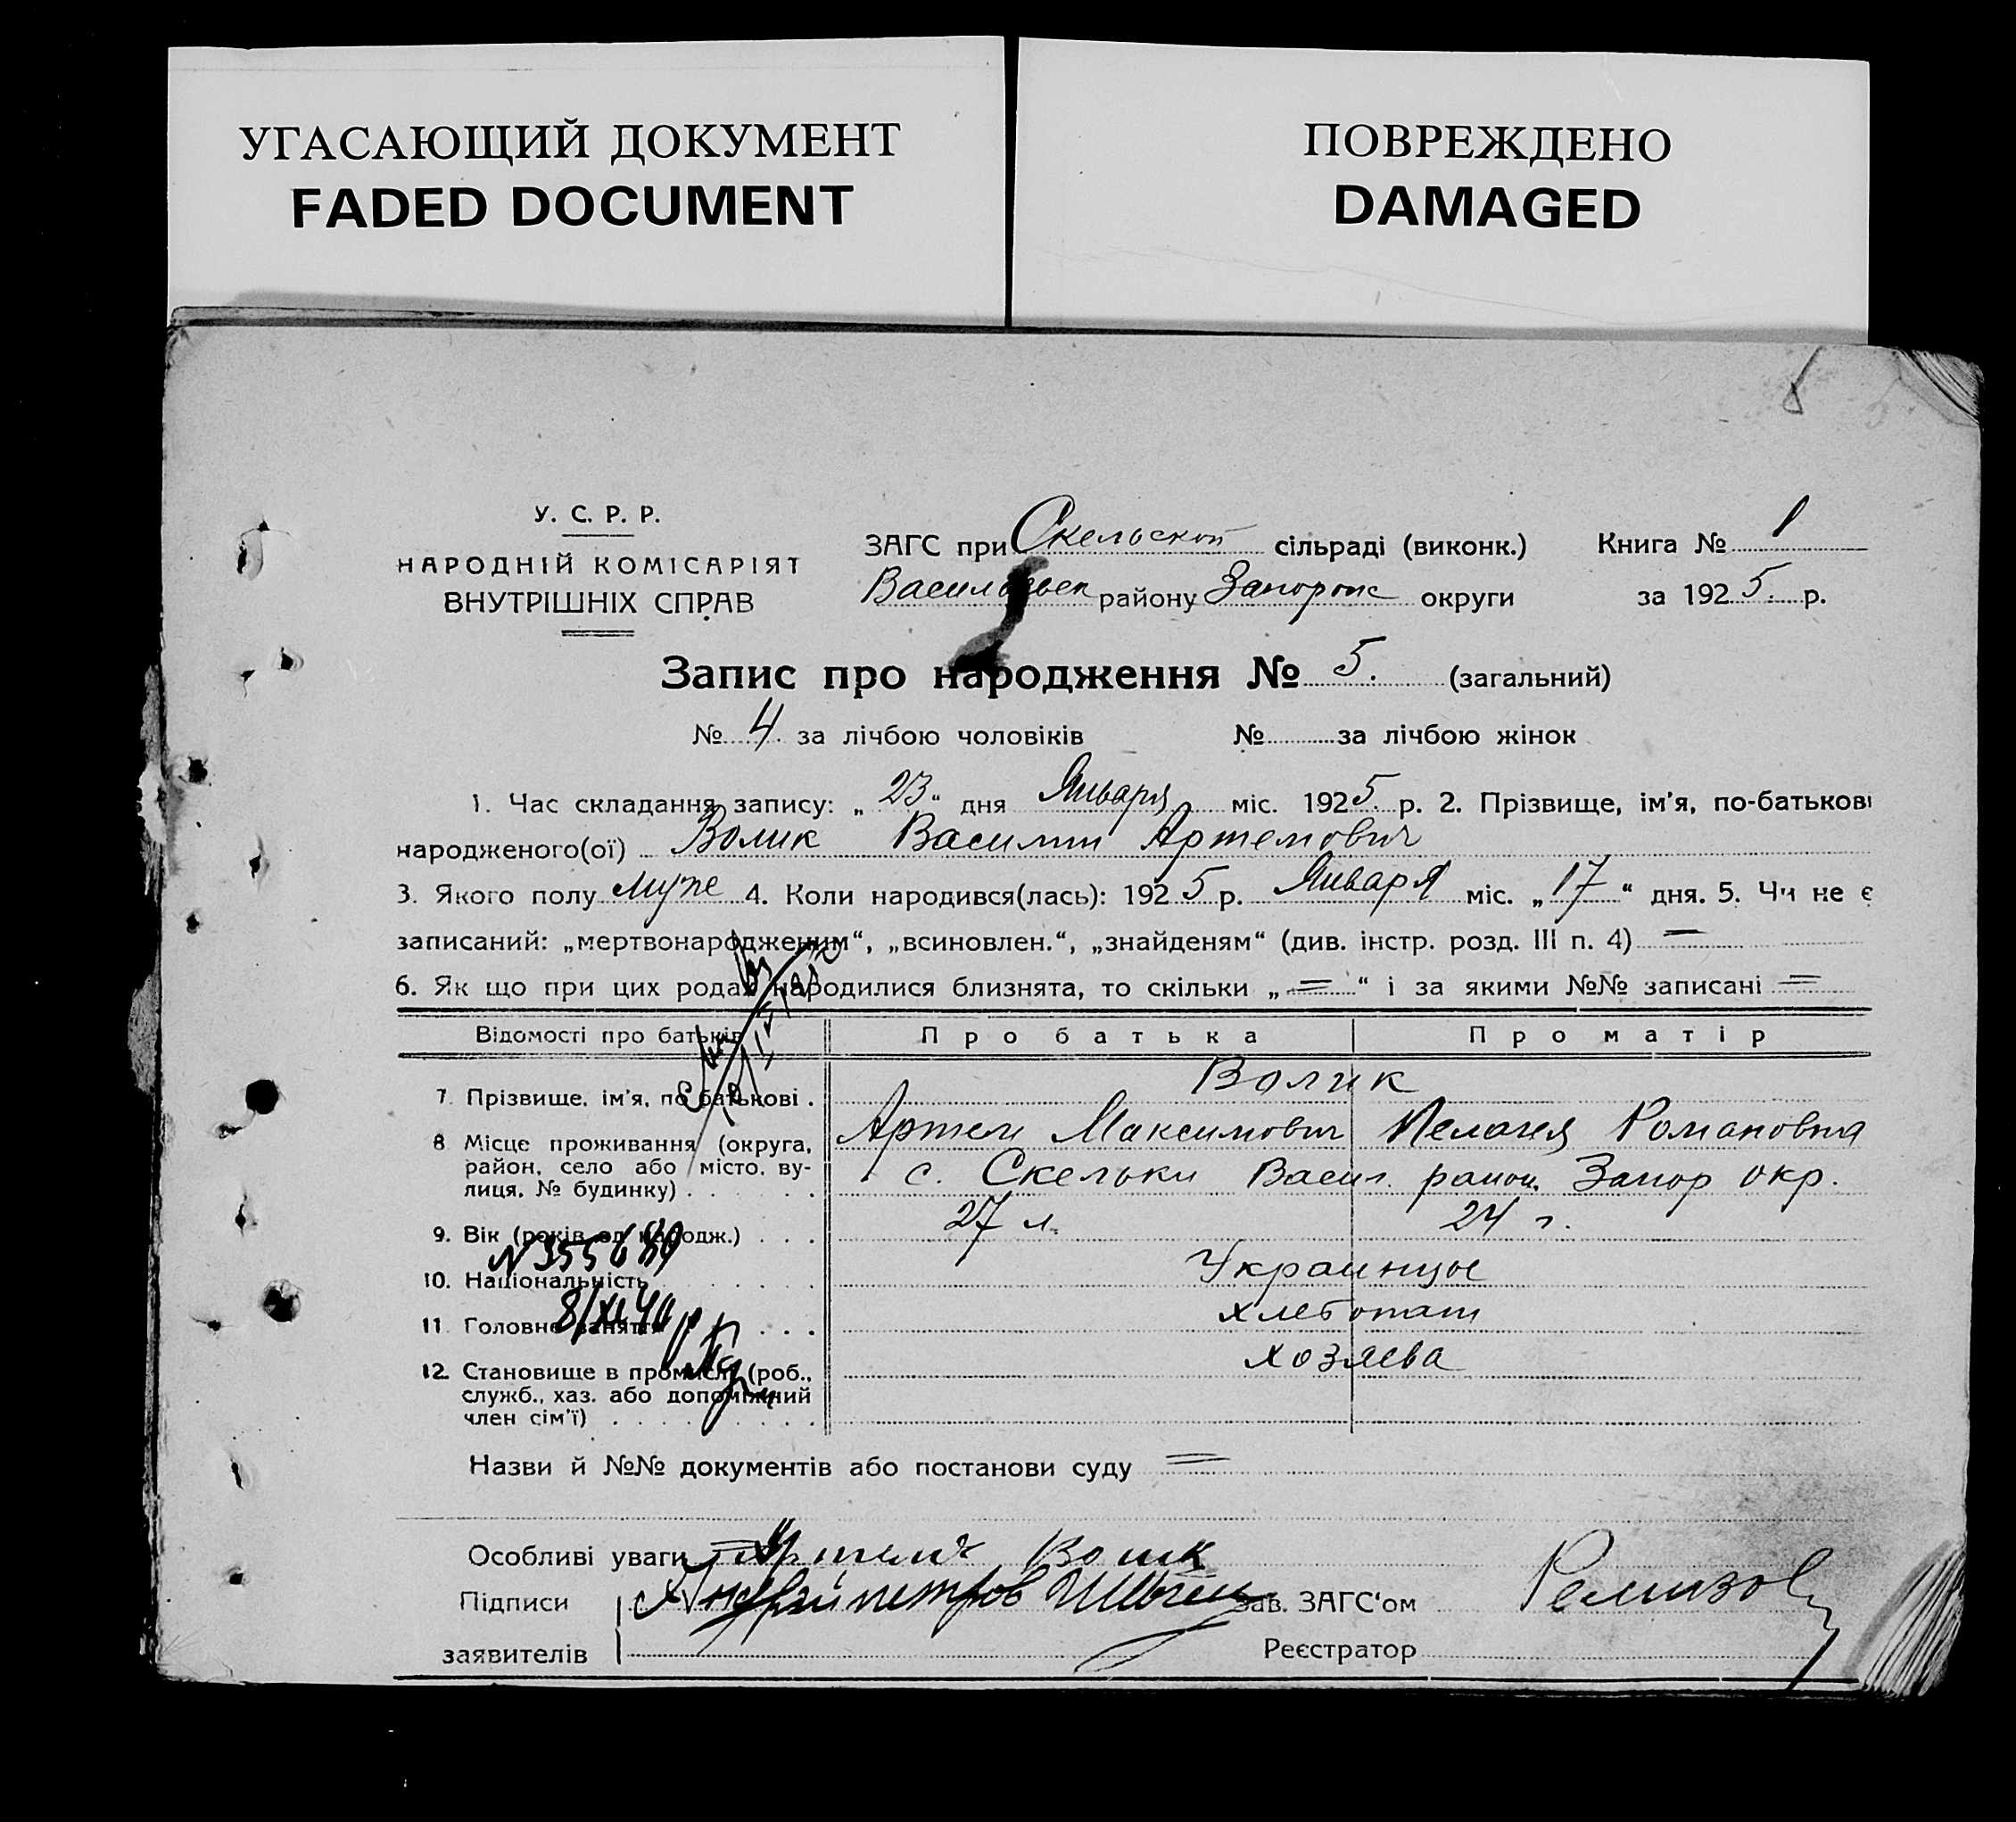 УГАСАЮЩИЙ ДОКУМЕНТ
FADED DOCUMENT
ПОВРЕЖДЕНО
DAMAGED
У. С. Р. Р.
НАРОДНІЙ КОМІСАРІЯТ
ВНУТРІШНІХ СПРАВ
ЗАГС при Скельской сільраді (виконк.) Книга № 1
Васильевск району Запорож округи за 1925. р.
Запис про народження № 5. (загальний)
№ 4. за лічбою чоловіків № за лічбою жінок
1. Час складання запису: „23“ дня Января міс. 1925. р. 2. Прізвище, ім'я, по-батькові
народженого(ої) Волик Василий Артемович
3. Якого полу муж 4. Коли народився(лась): 1925 р. Января міс. „17“ дня. 5. Чи не є
записаний: „мертвонародженим“, „всиновлен.“, „знайденям“ (див. інстр. розд. III п. 4) —
6. Як що при цих родах народилися близнята, то скільки „=“ і за якими №№ записані =
Відомості про батьків Про батька Про матір
7. Прізвище, ім'я, по батькові . Волик
Артем Максимович Пелагея Романовна
8 Місце проживання (округа,
район, село або місто, ву-
лиця, № будинку) . с. Скельки Васил. район. Запор окр.
9. Вік (років од народж.) . . . 27 л. 24 г.
N 355689
10. Національність Украинцы
11. Головне заняття . . . хлебопаш
8/XI 40 р
12. Становище в промислі (роб.,
служб., хаз. або допоміжний
член сім'ї) . хозяева
Назви й №№ документів або постанови суду =
Особливі уваги = Артем Волик
Підписи Андрей петров Зав. ЗАГС'ом Ремизов
заявителів Реєстратор